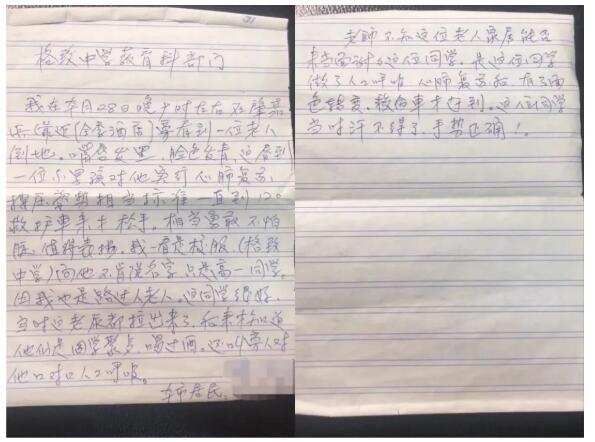 格致中学教育科部门
我在本月28日晚十时左右在肇嘉
浜(靠近)(金茂酒店)旁看到一位老人
倒地。嘴唇发黑，脸色发青，这看到
一位小男孩对他实行心肺复苏
按压姿势相当标准一直到120
救护车来才松手。相当勇敢不怕
脏，值得表扬。我一看是校服（格致
中学）问他不肯说名字只是高一同学。
因我也是路过人老人。这同学很好，
当时这老尿都拉出来了，后来才知道
他们是同学聚会喝过酒。还叫旁人对
他口对口人工呼吸。
本市居民
老师不知这位老人家属能否
来当面讨谢这位同学。是这位同学
做了人工呼吸心肺复苏后，有了面
色转变。救命车才过到。这位同学
当时许不得了，手势正确！。